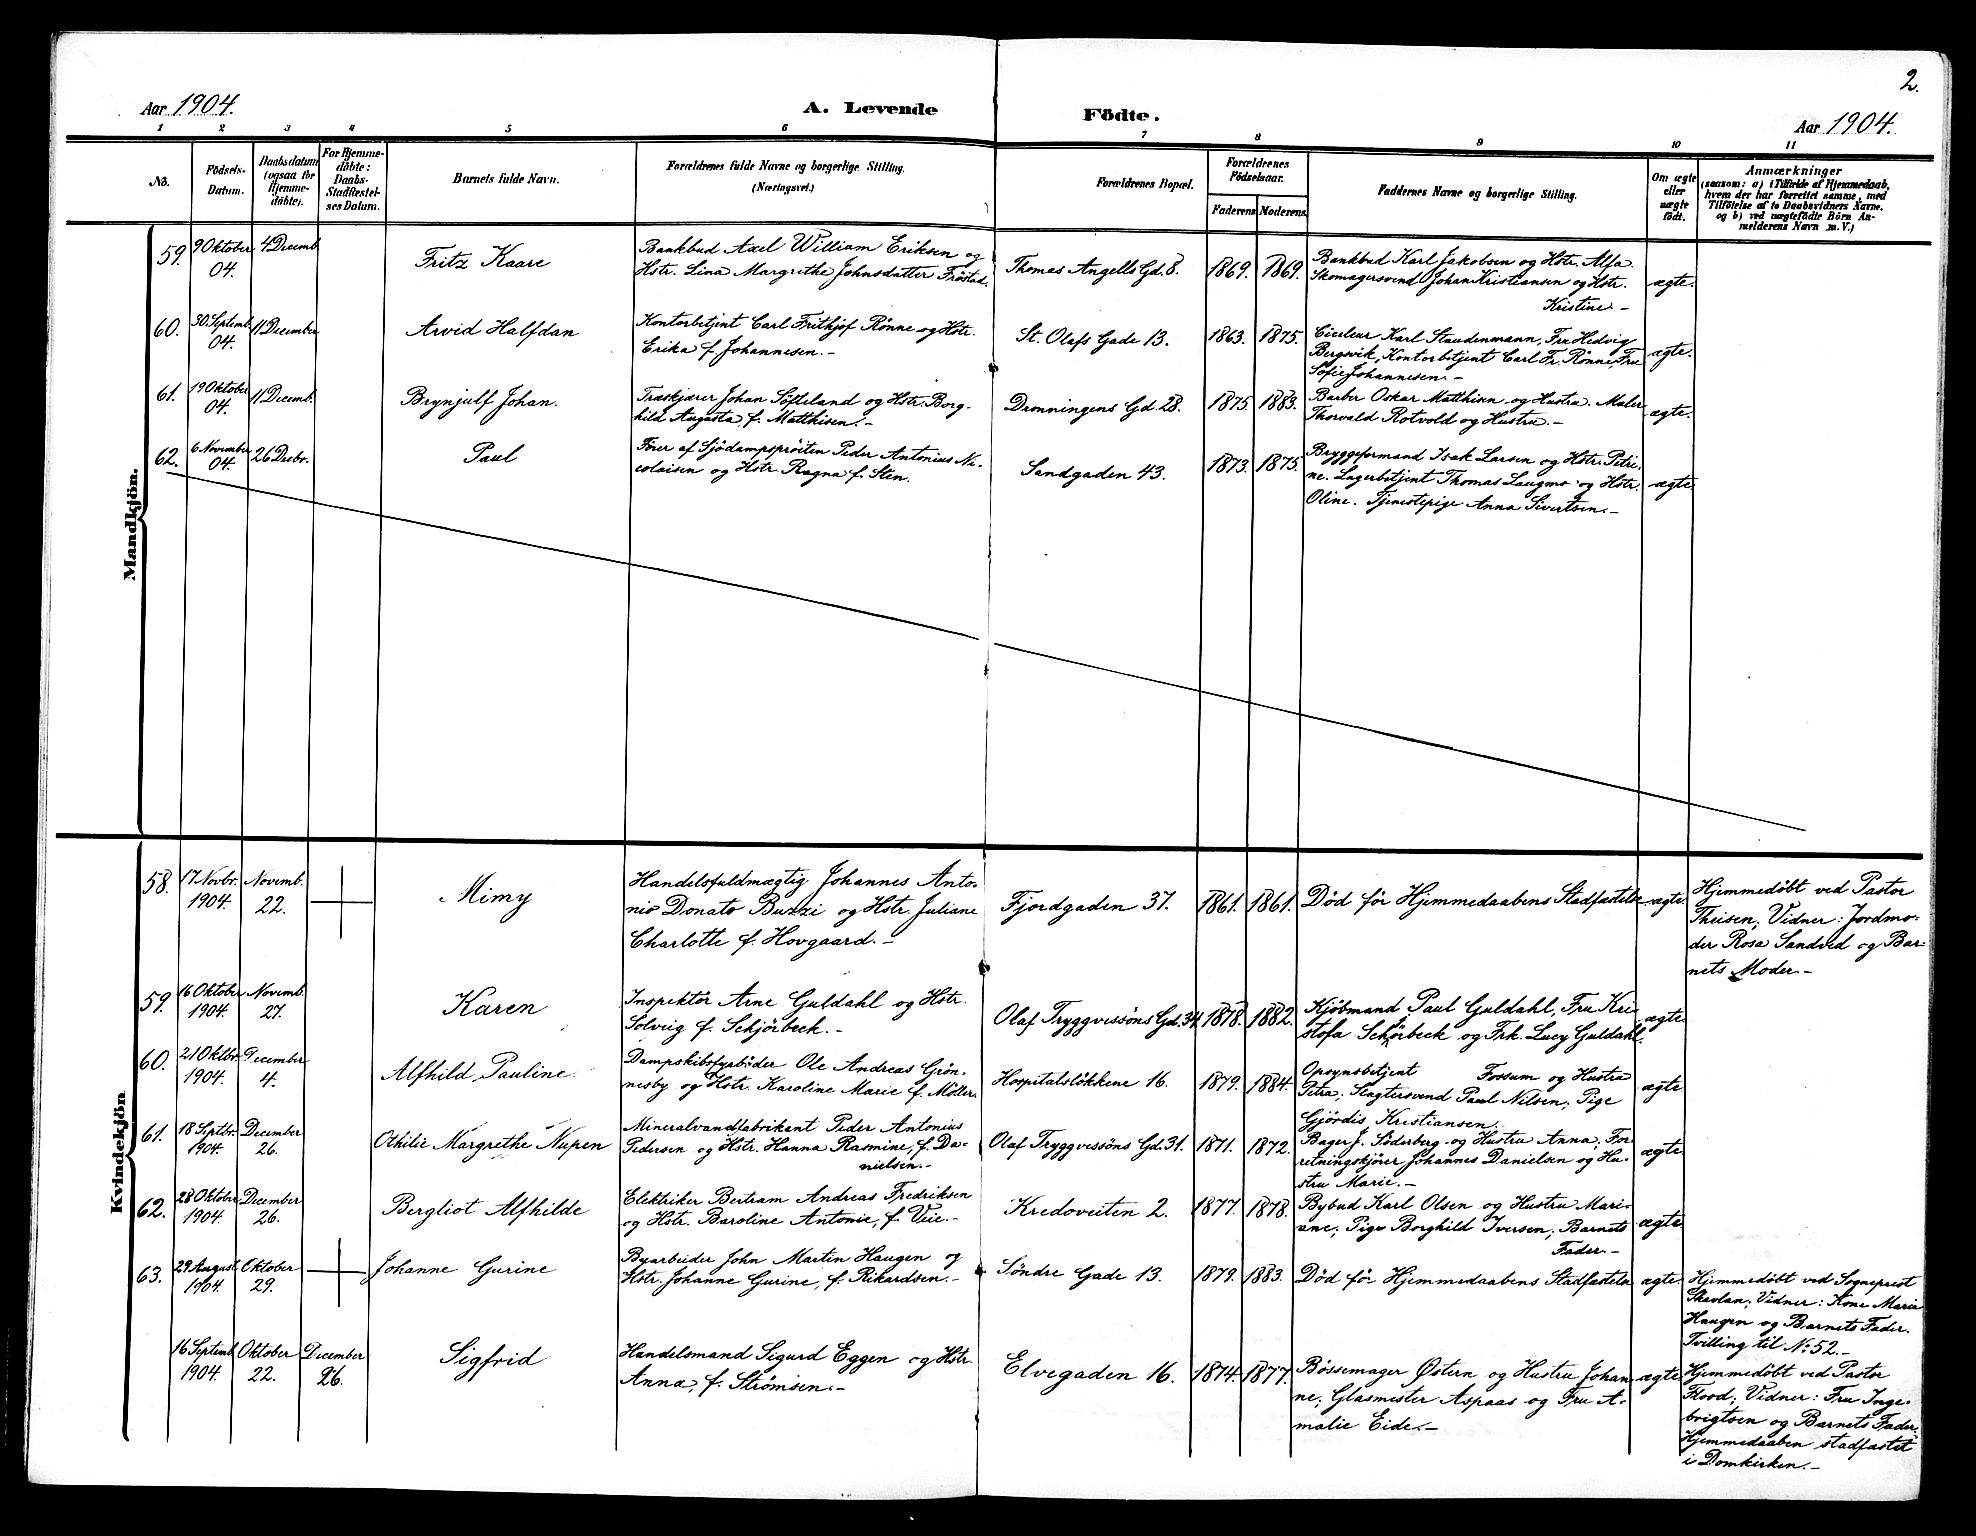 2.
Aar 1904. A. Levende Födte. Aar 1904.
1 2 3 4 5 6 7 8 9 10 11
No.
Födsels-
Datum.
Daabsdatum
(ogsaa for
Hjemme-
döbte).
For Hjemme-
döbte:
Daabs-
Stadfæstel-
ses Datum.
Barnets fulde Navn.
Forældrenes fulde Navne og borgerlige Stilling.
(Næringsvei.)
Forældrenes Bopæl.
Forældrenes
Födselsaar.
Faderens Moderens
Faddernes Navne og borgerlige Stilling.
Om ægte
eller
uægte
födt.
Anmærkninger
(saasom: a) i Tilfælde af Hjemmedaab,
hvem der har forrettet samme, med
Tilföielse af to Daabsvidners Navne,
og b) ved uægtefödte Börn An-
melderens Navn m. V.)
Mandkjön.
59.
9 Oktober
04.
4 Decemb.
Fritz Kaare
Bankbud Axel William Eriksen og
Hstr. Lina Margrethe Johnsdatter Frøstad.
Thomas Angells Gd. 8.
1869. 1869.
Bankbud Karl Jakobsen og Hstr. Alfa.
Skomagersvend Johan Kristiansen og Hstr.
Kristine –
ægte.
60.
30 Septemb.
04.
11 December
Arvid Halfdan
Kontorbetjent Carl Frithjof Rønne og Hstr.
Erika f. Johannesen. –
St. Olafs Gade 13.
1863. 1875.
Ciseleur Karl Staudenmann, Fru Hedvig
Bergsvik, Kontorbetjent Carl Fr. Rønne, Fru
Sofie Johannesen. –
ægte.
61.
19 Oktober
04.
11 Decemb.
Brynjulf Johan.
Træskjærer Johan Söfteland og Hstr. Borg-
hild Augusta f. Matthisen. –
Dronningens Gd. 28.
1875. 1883.
Barber Oskar Matthisen og Hustru. Maler
Thorvald Rotvold og Hustru. –
ægte.
62.
6 November
04.
26 Decbr.
Paul
Fører af Sjödampsprøiten Peder Antonius Ni-
colaisen og Hstr. Ragna f. Sten.
Sandgaden 43.
1873. 1875.
Bryggeformand Isak Larsen og Hstr. Petri-
ne. Lagerbetjent Thomas Laugmo og Hstr.
Oline. Tjenestepige Anna Sivertsen. –
ægte.
Kvindekjön
58.
17 Novbr.
1904.
Novemb.
22.
Mimy
Handelsfuldmægtig Johannes Anto-
nio Donato Buzzi og Hstr. Juliane
Charlotte f. Hovgaard. –
Fjordgaden 37.
1861. 1861.
Död før Hjemmedaabens Stadfæstelse
ægte.
Hjemmedøbt ved Pastor
Theisen; Vidner: Jordmo-
der Rosa Sandved og Bar-
nets Moder. –
59.
16 Oktober
1904.
Novemb.
27.
Karen
Inspektör Arne Guldahl og Hstr.
Solveig f. Schjörbeck. –
Olaf Tryggvessöns Gd. 34
1878. 1882.
Kjöbmand Paul Guldahl, Fru Kri-
stofa Schörbeck og Frk. Lucy Guldahl.
ægte.
60.
21 Oktbr.
1904.
December
4.
Alfhild Pauline.
Dampskibsfyrböder Ole Andreas Grön-
nesby og Hstr. Karoline Marie f. Möller.
Hospitalslökkene 16.
1879. 1884.
Opsynsbetjent Fossum og Hustru
Petra; Slagtersvend Paul Nilsen; Pige
Gjördis Kristiansen.
ægte
61.
18 Septbr.
1904.
December
26.
Othilie Margrethe Nupen
Mineralvandfabrikant Peder Antonius
Pedersen og Hstr. Hanna Rasmine, f. Da-
nielsen. –
Olaf Tryggvessöns Gd. 31.
1871. 1872.
Bager J. Söderberg og Hustru Anna; For-
retningskjører Johannes Danielsen og Hu-
stru Marie. –
ægte
62.
28 Oktober
1904.
December
26.
Bergliot Alfhilde
Elektriker Bertram Andreas Fredriksen
og Hstr. Baroline Antonie, f. Veie. –
Kredoveiten 2.
1877. 1878.
Bybud Karl Olsen og Hustru Mari-
ane; Pige Borghild Iversen; Barnets
Fader. –
ægte
63.
29 August
1904.
Oktober
29.
Johanne Gurine
Byarbeider John Martin Haugen og
Hstr. Johanne Gurine, f. Rikardsen. –
Söndre Gade 13.
1879. 1883.
Död før Hjemmedaabens Stadfæstelse
ægte
Hjemmedøbt ved Sogneprest
Skavlan; Vidner: Kone Marie
Haugen og Barnets Fader.
Tvilling til No. 52. –
16 Septemb.
1904.
Oktober
22.
December
26.
Sigfrid
Handelsmand Sigurd Eggen og Hstr.
Anna, f. Strömsen. –
Elvegaden 16.
1874. 1877.
Bössemager Østern og Hustru Johan-
ne; Glasmester Aspaas og Fru A-
malie Eide. –
ægte
Hjemmedøbt ved Pastor
Flood; Vidner: Fru Inge-
brigtsen og Barnets Fader.
Hjemmedaaben stadfæstet
i Domkirken. –